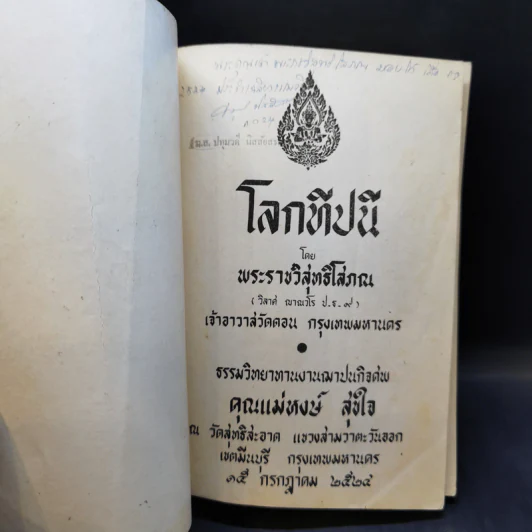 โลกทีปนี
โดย
พระราชวิสุทธิโสภณ
( วิลาศ ญาณวโร ป.ธ.๙ )
เจ้าอาวาสวัดดอน กรุงเทพมหานคร
ธรรมวิทยาทานงานฌาปนกิจศพ
คุณแม่หงษ์ สุขใจ
ณ วัดสุทธิสะอาด แขวงสามวาตะวันออก
เขตมีนบุรี กรุงเทพมหานคร
๑๕ กรกฎาคม ๒๕๒๔